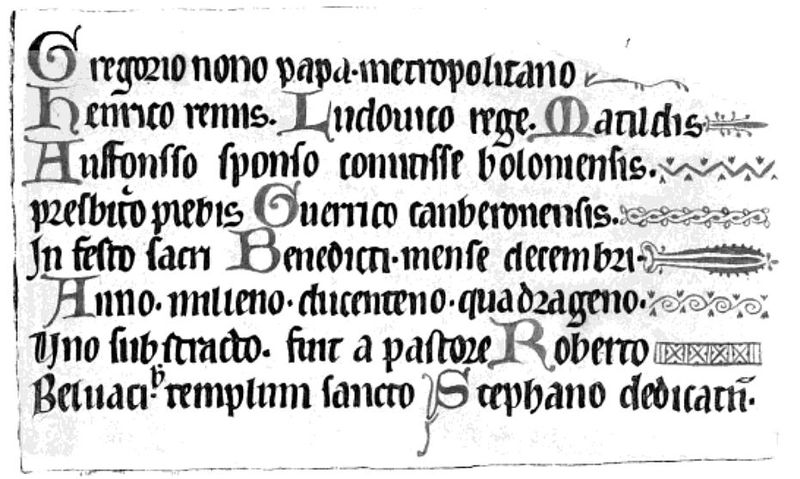 Gregorio nono papa·metropolitano
Henrico remis. Ludouico rege. Matildis
Auffonsso sponso comitisse boloniensis.
presbit̾o plebis Guerrico canberonensis.
In festo sacri Benedicti·mense decembri·
Anno· milleno· ducenteno· quadrageno·
Uno substracto· fuit a pastore Roberto
Beluaci·h̾ templum sancto Stephano dedicatū·